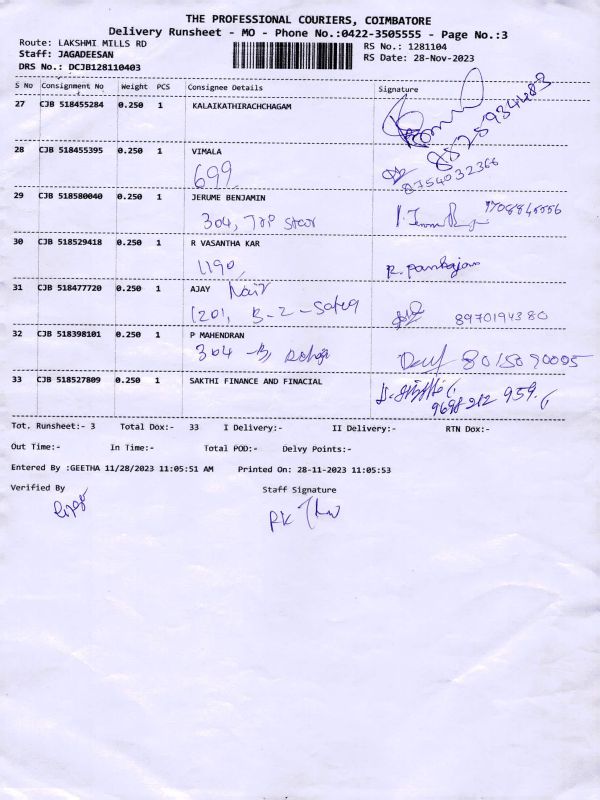 THE PROFESSIONAL COURIERS, COIMBATORE
Delivery Runsheet - MO - Phone No.:0422-3505555 - Page No.:3
Route: LAKSHMI MILLS RD
RS No.: 1281104
Staff: JAGADEESAN
RS Date: 28-Nov-2023
DRS No.: DCJB128110403
S No Consignment No Weight PCS Consignee Details Signature
27 CJB 518455284 0.250 1 KALAIKATHIRACHCHAGAM
28 CJB 518455395 0.250 1 VIMALA
699
8754032366
29 CJB 518580040 0.250 1 JERUME BENJAMIN
304,
30 CJB 518529418 0.250 1 R VASANTHA KAR
1190
R. Pankajam
31 CJB 518477720 0.250 1 AJAY Nair
1201, B-2-
8970194380
32 CJB 518398101 0.250 1 P MAHENDRAN
304 -B,
8015090005
33 CJB 518527809 0.250 1 SAKTHI FINANCE AND FINACIAL
9698 212 959.
Tot. Runsheet:- 3 Total Dox:- 33 I Delivery:- II Delivery:- RTN Dox:-
Out Time:- In Time:- Total POD:- Delvy Points:-
Entered By :GEETHA 11/28/2023 11:05:51 AM Printed On: 28-11-2023 11:05:53
Verified By Staff Signature